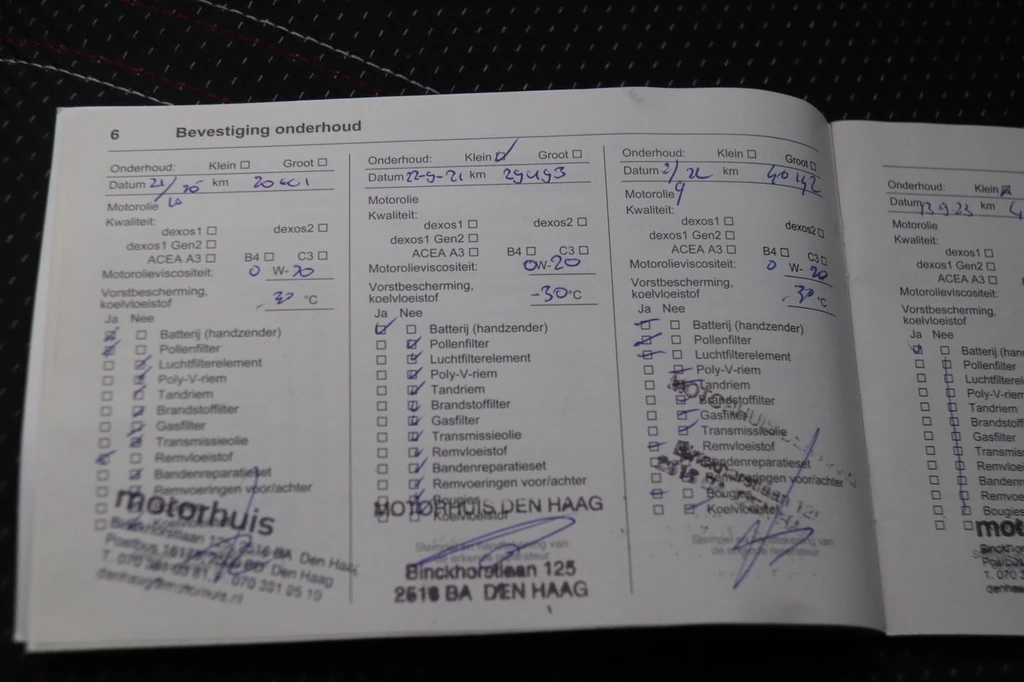 6 Bevestiging onderhoud
Onderhoud: Klein Groot
Datum km
Motorolie
Kwaliteit:
dexos1 dexos2
dexos1 Gen2
ACEA A3 B4 C3
Motorolieviscositeit: 0 W-20
Vorstbescherming,
koelvloeistof -30 °C
Ja Nee
Batterij (handzender)
Pollenfilter
Luchtfilterelement
Poly-V-riem
Tandriem
Brandstoffilter
Gasfilter
Transmissieolie
Remvloeistof
Bandenreparatieset
Remvoeringen voor/achter
motorhuis
Binckhorstlaan 125 2516 BA Den Haag
Den Haag
T. 070
Onderhoud: Klein Groot
Datum 22-9-21 km 29493
Motorolie
Kwaliteit:
dexos1 dexos2
dexos1 Gen2
ACEA A3 B4 C3
Motorolieviscositeit: 0W-20
Vorstbescherming,
koelvloeistof -30 °C
Ja Nee
Batterij (handzender)
Pollenfilter
Luchtfilterelement
Poly-V-riem
Tandriem
Brandstoffilter
Gasfilter
Transmissieolie
Remvloeistof
Bandenreparatieset
Remvoeringen voor/achter
Bougies
MOTORHUIS DEN HAAG
Koelvloeistof
Binckhorstlaan 125
2516 BA DEN HAAG
Onderhoud: Klein Groot
Datum km 40142
Motorolie
Kwaliteit:
dexos1 dexos2
dexos1 Gen2
ACEA A3 B4 C3
Motorolieviscositeit: 0 W-20
Vorstbescherming,
koelvloeistof -30 °C
Ja Nee
Batterij (handzender)
Pollenfilter
Luchtfilterelement
Poly-V-riem
Tandriem
Brandstoffilter
Gasfilter
Transmissieolie
Remvloeistof
Bandenreparatieset
Remvoeringen voor/achter
Bougies
Koelvloeistof
Onderhoud: Klein
Datum 13 9 23 km
Motorolie
Kwaliteit:
dexos1
dexos1 Gen2
ACEA A3
Motorolieviscositeit:
Vorstbescherming,
koelvloeistof
Ja Nee
Batterij (han
Pollenfilter
Luchtfilterele
Poly-V-riem
Tandriem
Brandstoff
Gasfilter
Transmiss
Remvloe
Banden
Remvoe
Bougies
mot